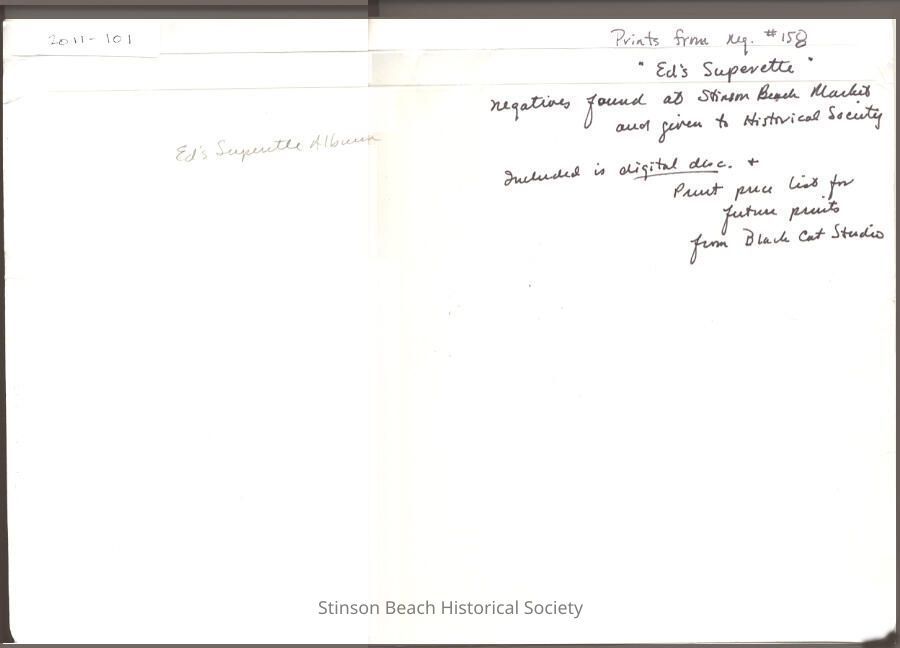 2011-101
Prints from neg. #158
"Ed's Superette"
negatives found at Stinson Beach Market
and given to Historical Society
Ed's Superette Album
Included is digital disc. +
Print price list for
future prints
from Black Cat Studio
Stinson Beach Historical Society